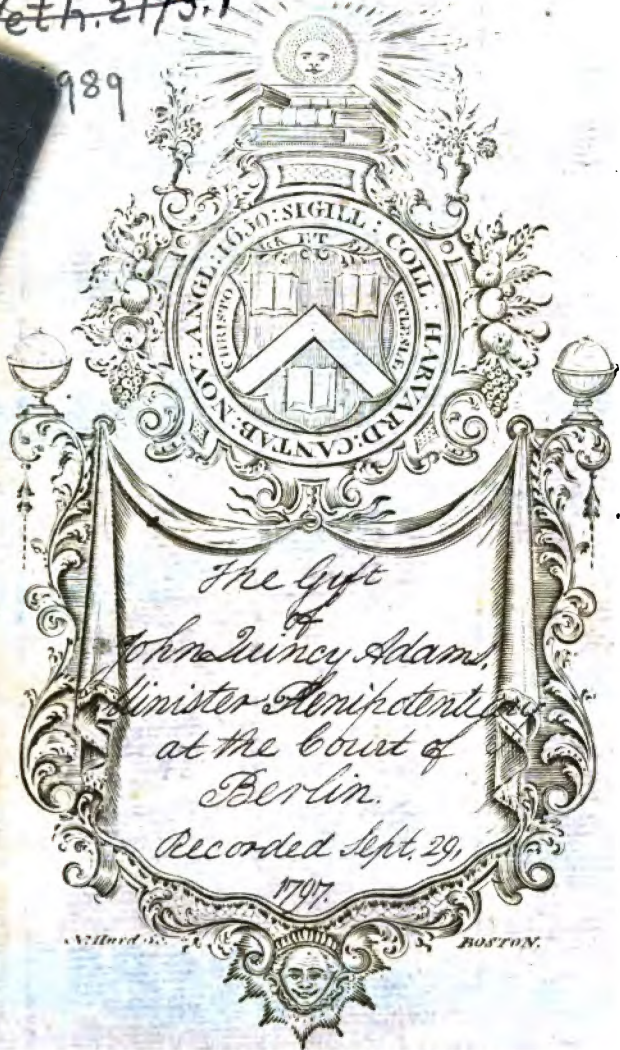 Neth. 2173.1
989
SIGILL : COLL : HARVARD : CANTAB : NOV : ANGL : 1650 :
ET
CHRISTO
ECCLESIÆ
The Gift
of
John Quincy Adams,
Minister Plenipotentiary
at the Court of
Berlin.
Recorded Sept. 29,
1797.
N. Hurd Sc.
BOSTON.